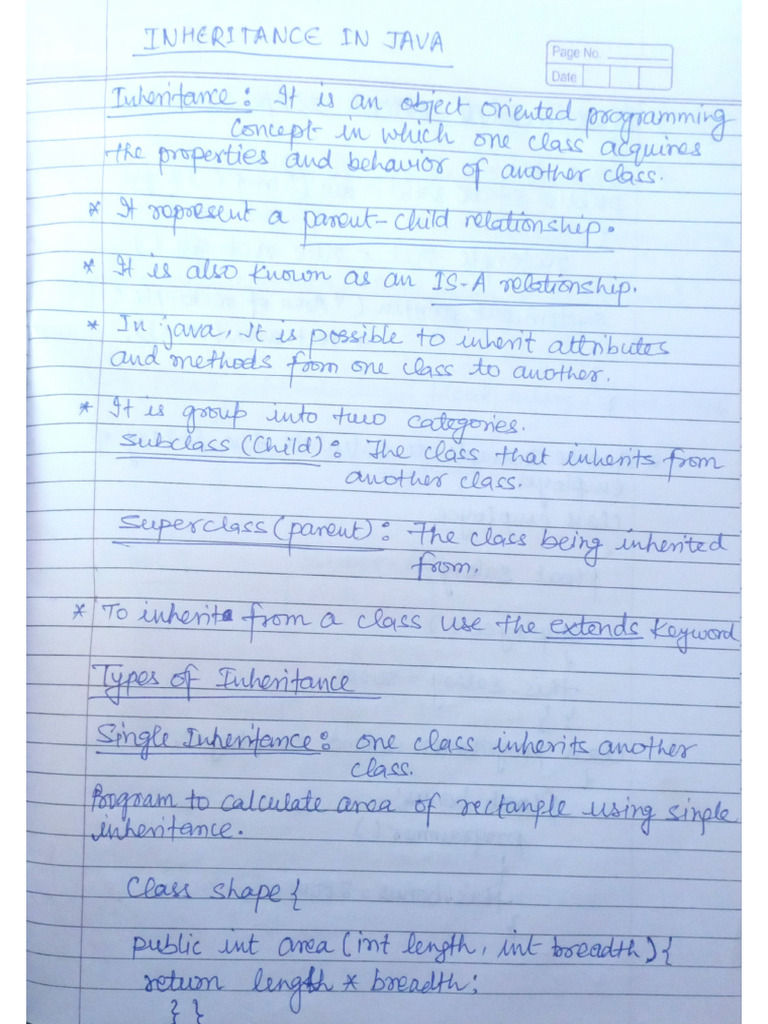 INHERITANCE IN JAVA
Page No.
Date
Inheritance: It is an object oriented programming
concept in which one class acquires
the properties and behavior of another class.
* It represent a parent-child relationship.
* It is also known as an IS-A relationship.
* In java, it is possible to inherit attributes
and methods from one class to another.
* It is group into two categories.
Subclass (Child): The class that inherits from
another class.
Superclass (parent): The class being inherited
from.
* To inherit from a class use the extends keyword
Types of Inheritance
Single Inheritance: one class inherits another
class.
Program to calculate area of rectangle using single
inheritance.
Class shape {
public int area (int length, int breadth) {
return length * breadth;
} }